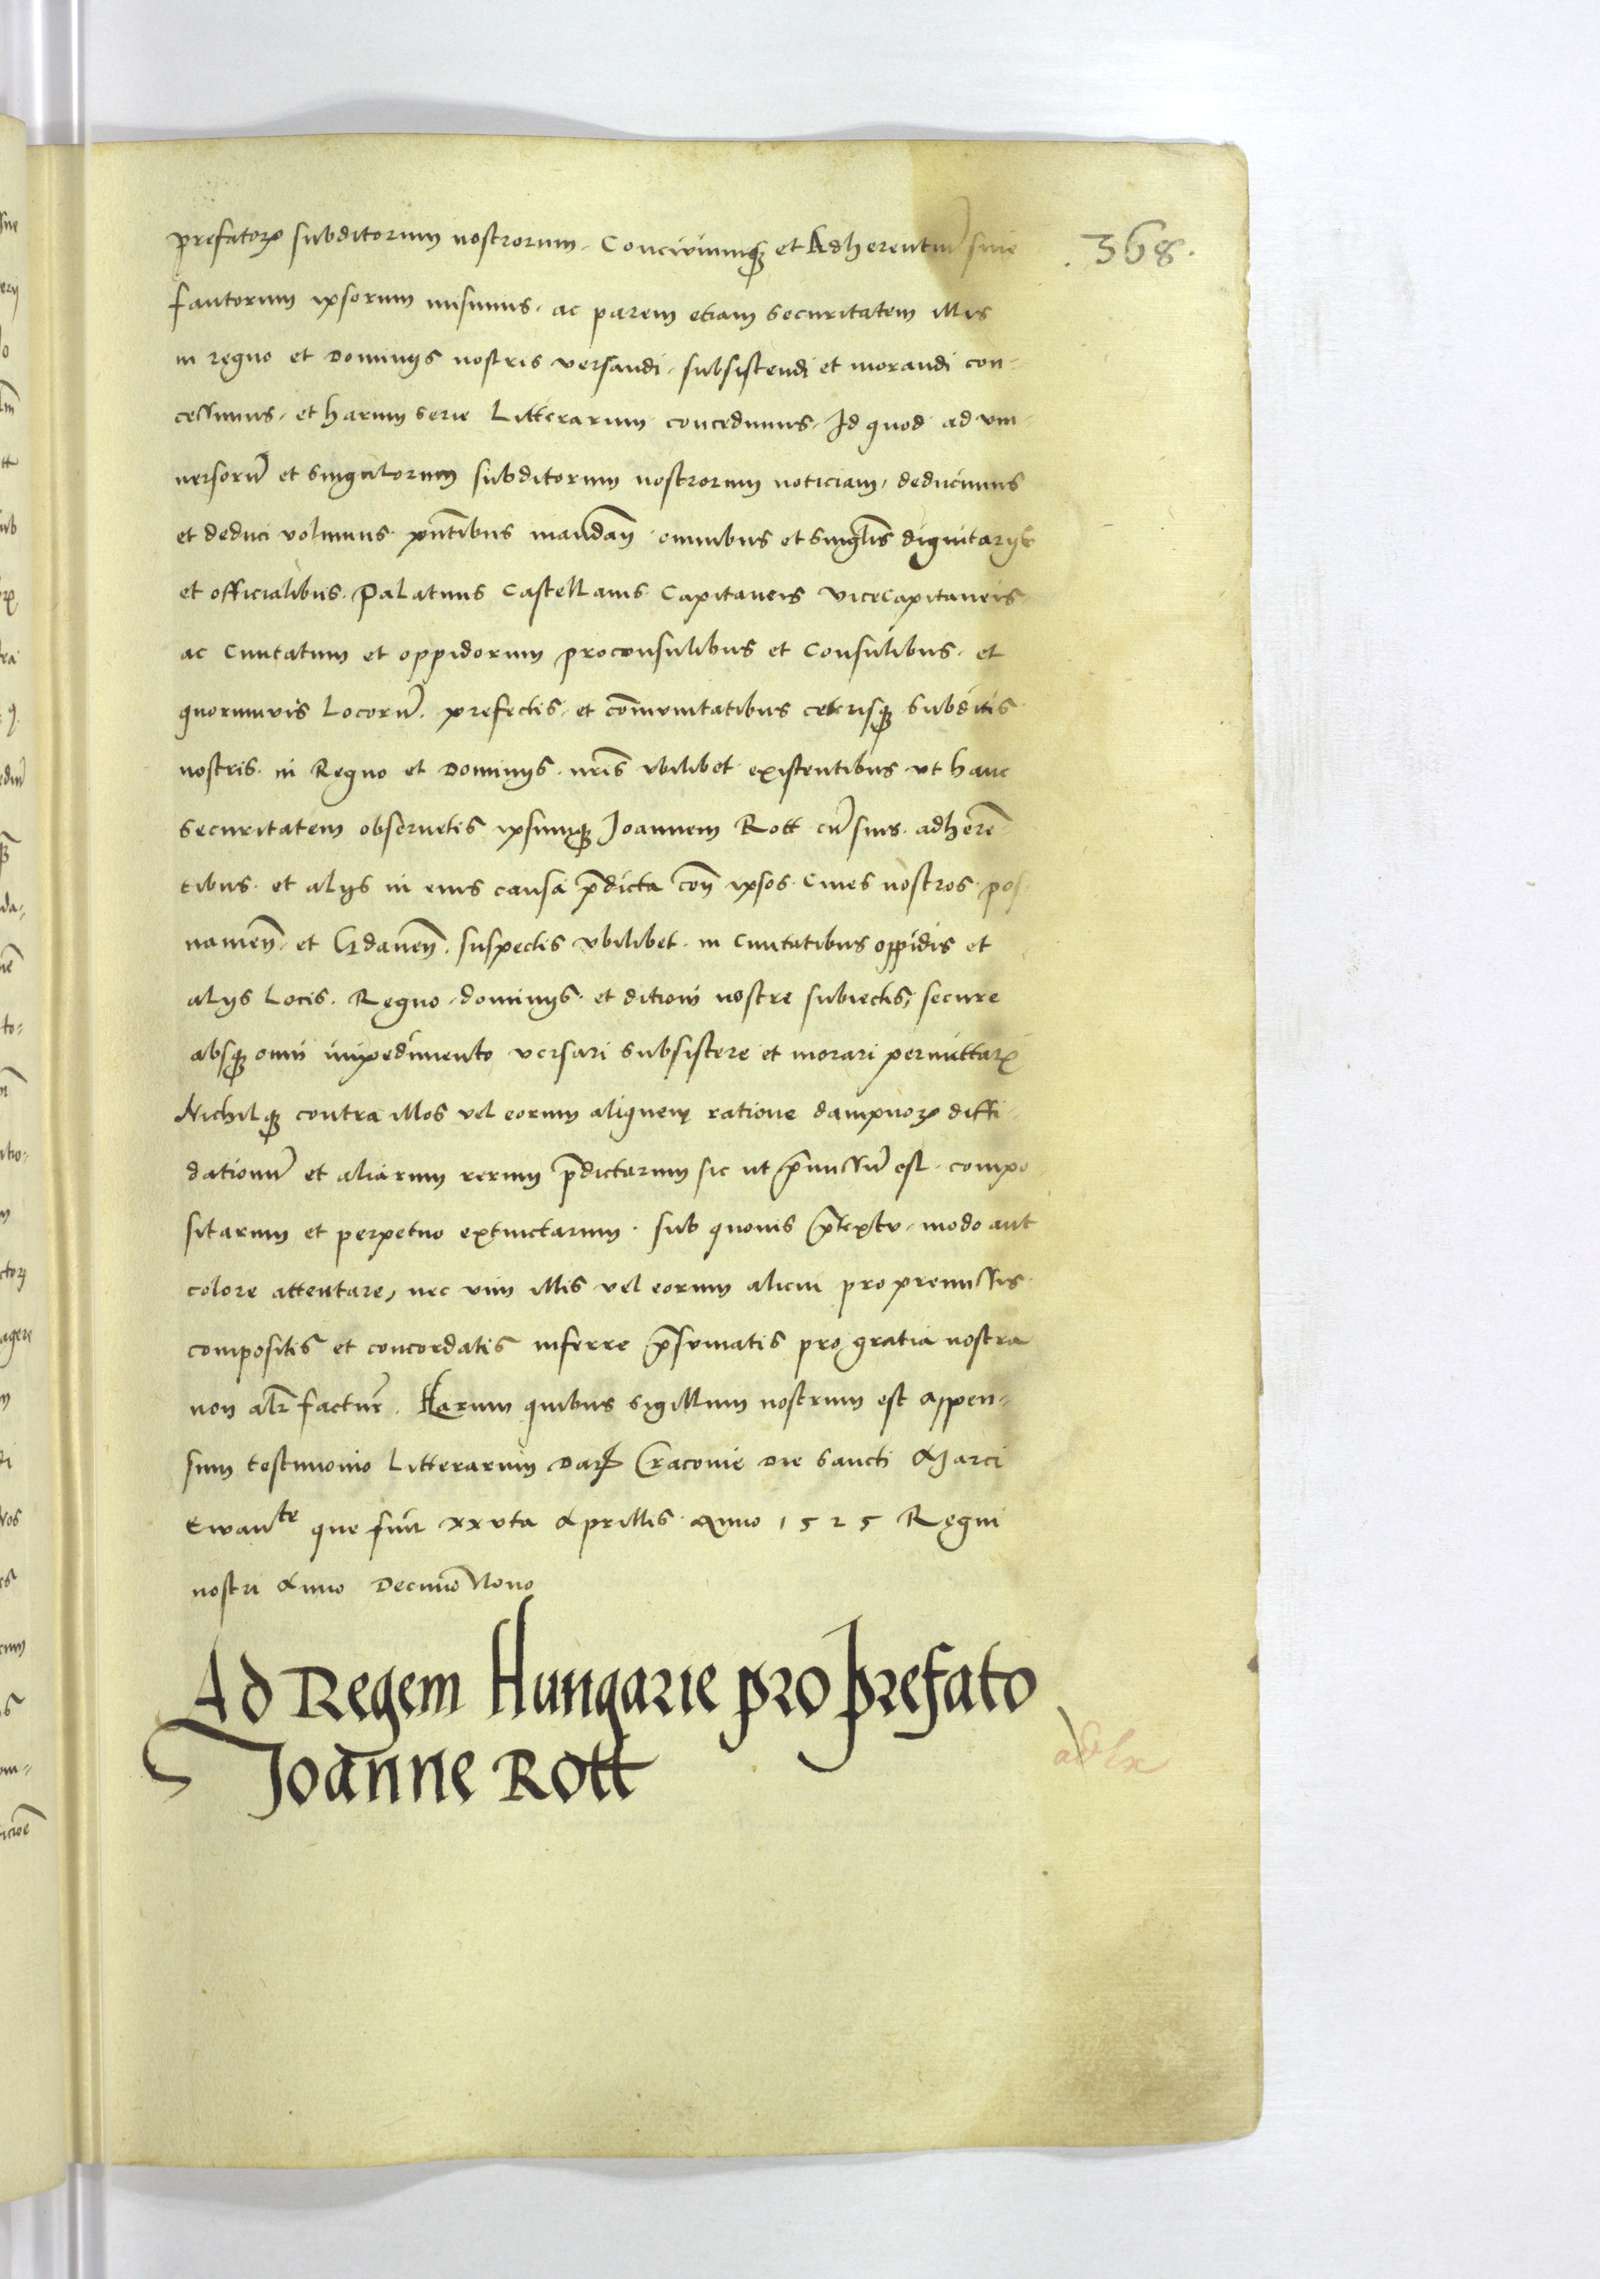 .368.
prefatorꝝ subditorum nostrorum. Conciviumqꝫ et Adherentiū sive
fautorum ipsorum misimus. ac parem etiam securitatem illis
in regno et Dominijs nostris versandi. subsistendi et morandi con-
cessimus. et harum serie Litterarum concedimus. Id quod ad vni-
uersorū et singulorum subditorum nostrorum noticiam, deducimus
et deduci volumus. pntibus mandan̄ omnibus et singlis dignitarijs
et officialibus. Palatinis Castellanis Capitaneis vicecapitaneis
ac Ciuitatum et oppidorum proconsulibus et Consulibus. et
quorumvis Locorū. prefectis. et com̄vnitatibus ceterisqꝫ Subditis
nostris. in Regno et Dominijs. nr̄is vbilibet existentibus. vt hanc
securitatem obseruetis ipsumqꝫ Joannem Rott cū suis. adherē-
tibus. et alijs in eius causa p̄dicta con̄ ipsos. Ciues nostros. pos-
namen̄. et Gdanen̄. suspectis vbilibet. in Ciuitatibus oppidis et
alijs Locis. Regno. dominijs. et ditioni nostre subiectis, secure
absqꝫ omni impedimento versari subsistere et morari permittatꝭ
Nichilqꝫ contra illos vel eorum aliquem ratione dampnorꝝ diffi-
dationū et aliarum rerum p̄dictarum sic ut p̄missū est. compo
sitarum et perpetuo extinctarum. sub quouis p̄textv. modo aut
colore attentare, nec vim illis vel eorum alicui pro premissis
compositis et concordatis inferre p̄svmatis pro gratia nostra
non alr̄ factur̄. Harum quibus sigillum nostrum est appen-
sum testimonio Litterarum Datꝭ Cracovie Die Sancti Marci
Ewante que fuit xxvta Aprillis Anno 1525 Regni
nostri Anno Decimo Nono
Ad Regem Hungarie pro prefato
Joanne Rott